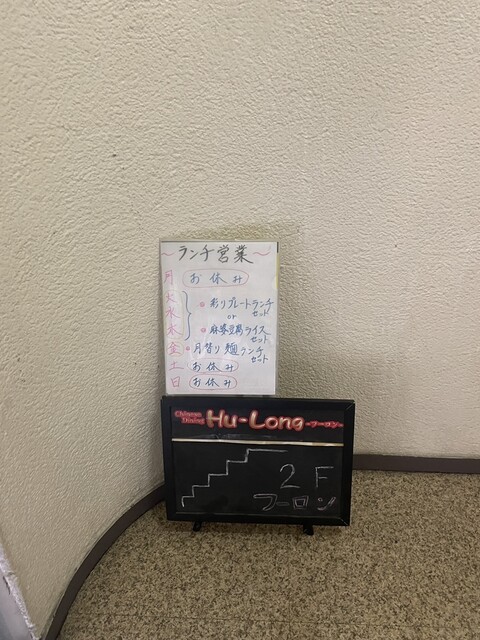 ～ランチ営業～
月 お休み
火 ●彩りプレートランチセット
水 or
木 ●麻婆豆腐ライスセット
金 ●月替り麺ランチセット
土 お休み
日 お休み
Chinese Dining Hu-Long -フーロン-
2F
フーロン